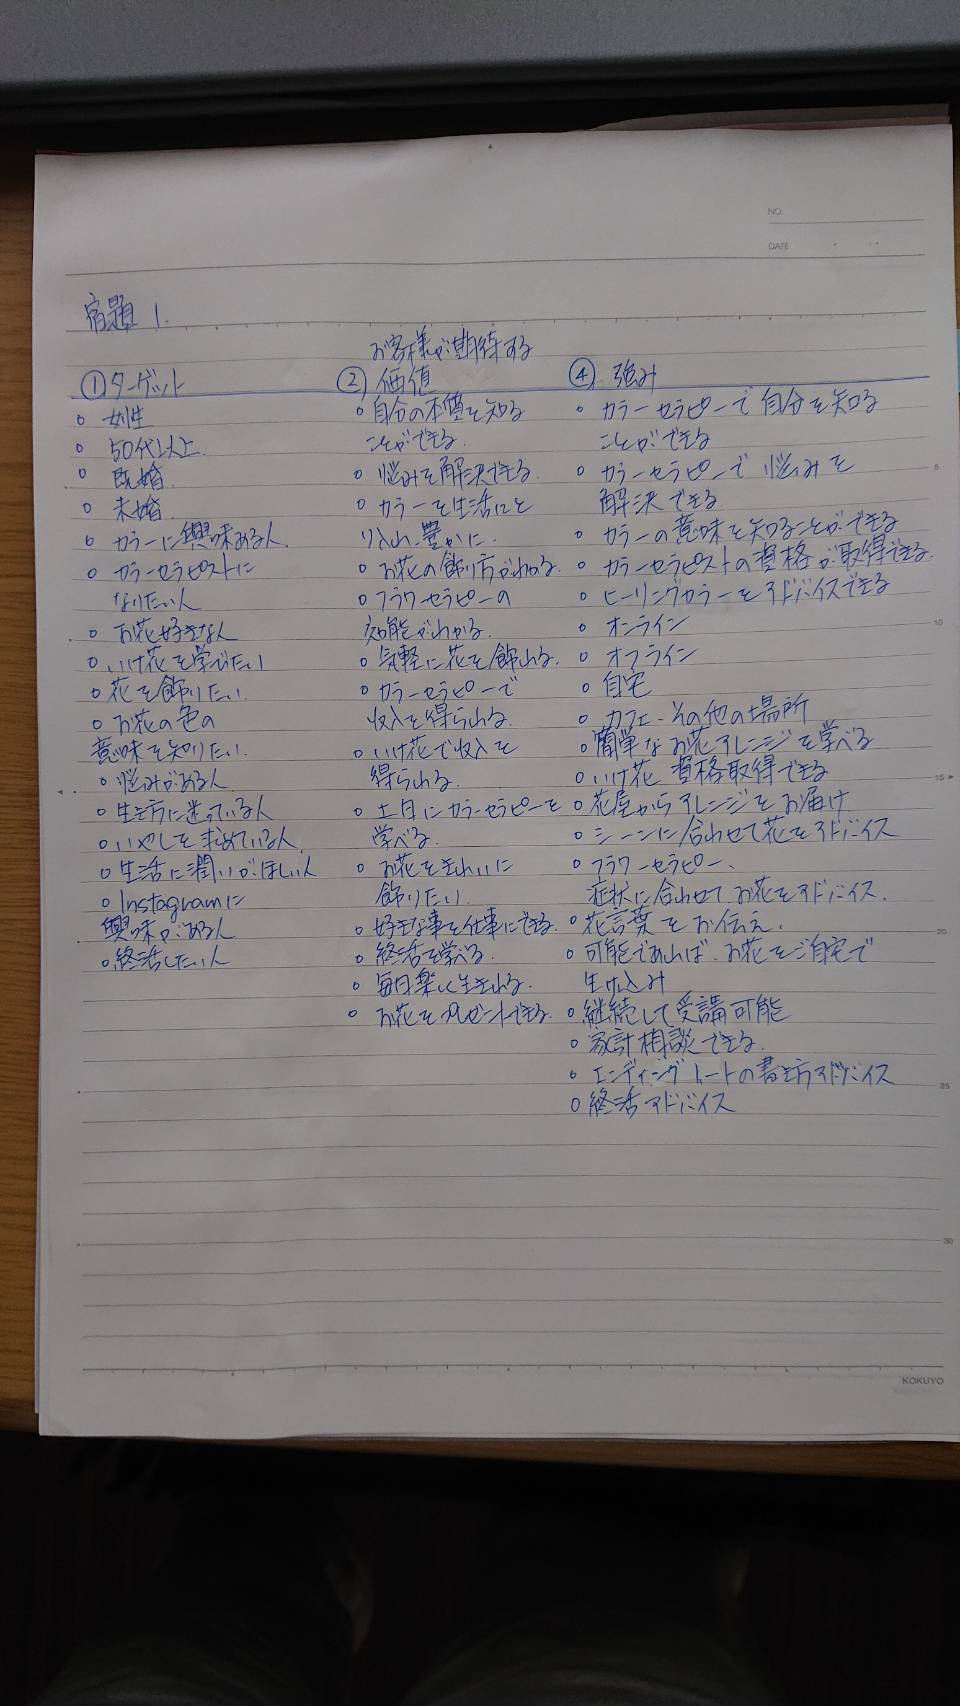 NO.
DATE
宿題 1.
①ターゲット
○ 女性
○ 50代以上
○ 既婚
○ 未婚
○ カラーに興味ある人
○ カラーセラピストに
なりたい人
○ お花好きな人
○ いけ花を学びたい
○ 花を飾りたい
○ お花の色の
意味を知りたい
○ 悩みがある人
○ 生き方に迷っている人
○ いやしを求めている人
○ 生活に潤いがほしい人
○ Instagramに
興味がある人
○ 終活したい人
お客様が期待する
② 価値
○ 自分の本質を知る
ことができる
○ 悩みを解決できる
○ カラーを生活にと
り入れ豊かに
○ お花の飾り方がわかる
○ フラワセラピーの
効能がわかる
○ 気軽に花を飾れる
○ カラーセラピーで
収入を得られる
○ いけ花で収入を
得られる
○ 土日にカラーセラピーを
学べる
○ お花をきれいに
飾りたい
○ 好きな事を仕事にできる
○ 終活を学べる
○ 毎日楽しく生きれる
○ お花をプレゼントできる
④ 強み
○ カラーセラピーで自分を知る
ことができる
○ カラーセラピーで悩みを
解決できる
○ カラーの意味を知ることができる
○ カラーセラピストの資格が取得できる
○ ヒーリングカラーをアドバイスできる
○ オンライン
○ オフライン
○ 自宅
○ カフェ・その他の場所
○ 簡単なお花アレンジを学べる
○ いけ花 資格取得できる
○ 花屋からアレンジをお届け
○ シーンに合わせて花をアドバイス
○ フラワーセラピー、
症状に合わせてお花をアドバイス
○ 花言葉をお伝え
○ 可能であれば、お花をご自宅で
生け込み
○ 継続して受講可能
○ 家計相談できる
○ エンディングノートの書き方アドバイス
○ 終活アドバイス
5
10
15
20
25
30
KOKUYO